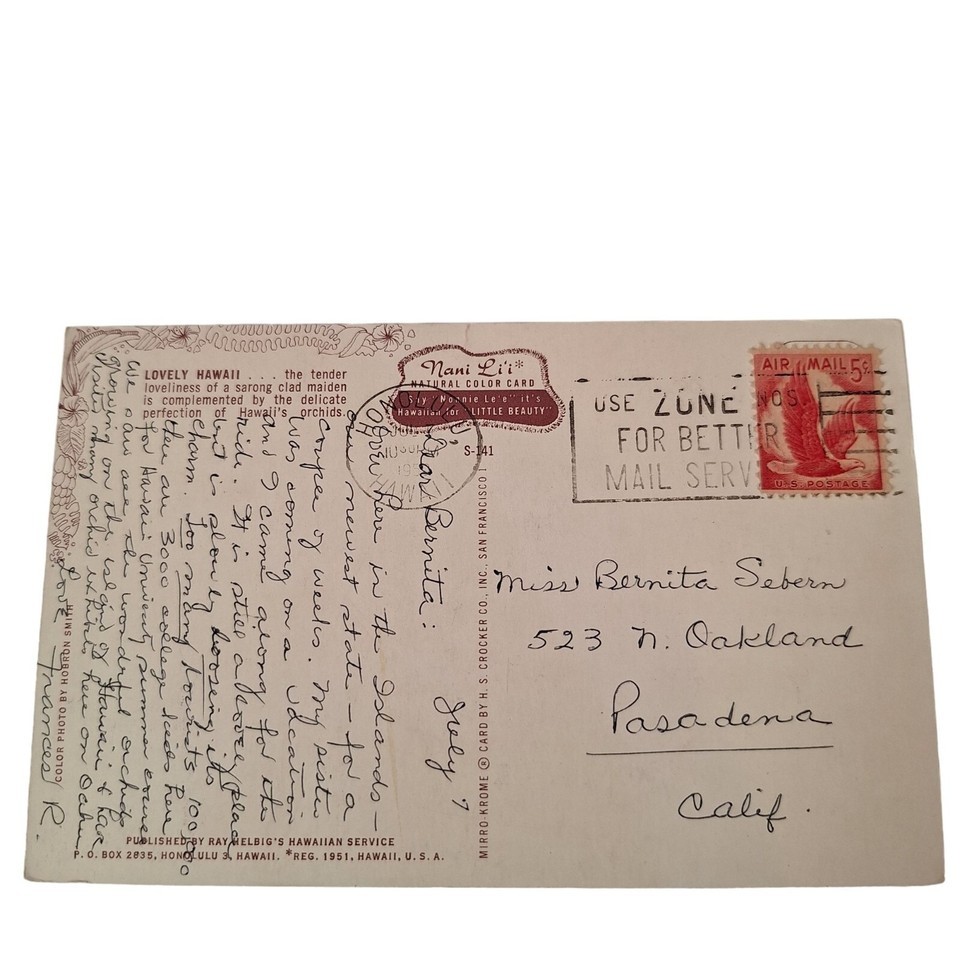 LOVELY HAWAII . . . . the tender
loveliness of a sarong clad maiden
is complemented by the delicate
perfection of Hawaii's orchids.
Nani Li'i*
NATURAL COLOR CARD
Say "Nonnie Le'e" it's
Hawaiian for "LITTLE BEAUTY"
S-141
HONOLULU
HAWAII
USE ZONE NOS.
FOR BETTER
MAIL SERV
AIR MAIL 5¢
U.S. POSTAGE
July 7
Dear Bernita:
Here in the Islands –
our newest state – for a
couple of weeks. My sister
was coming on a vacation
and I came along for the
ride. It is still a lovely place
but is slowly loosing its
charm. Too many tourists
there are 3000 college kids here
for Hawaii University summer courses
We saw all the wonderful orchids
growing on the island of Hawaii & have
visited many orchid exhibits here on Oahu
Love
Frances R.
Miss Bernita Sebern
523 N. Oakland
Pasadena
Calif.
COLOR PHOTO BY HOBRON SMITH
MIRRO-KROME ® CARD BY H. S. CROCKER CO., INC., SAN FRANCISCO 1
PUBLISHED BY RAY HELBIG'S HAWAIIAN SERVICE
P. O. BOX 2835, HONOLULU 3, HAWAII. *REG. 1951, HAWAII, U. S. A.